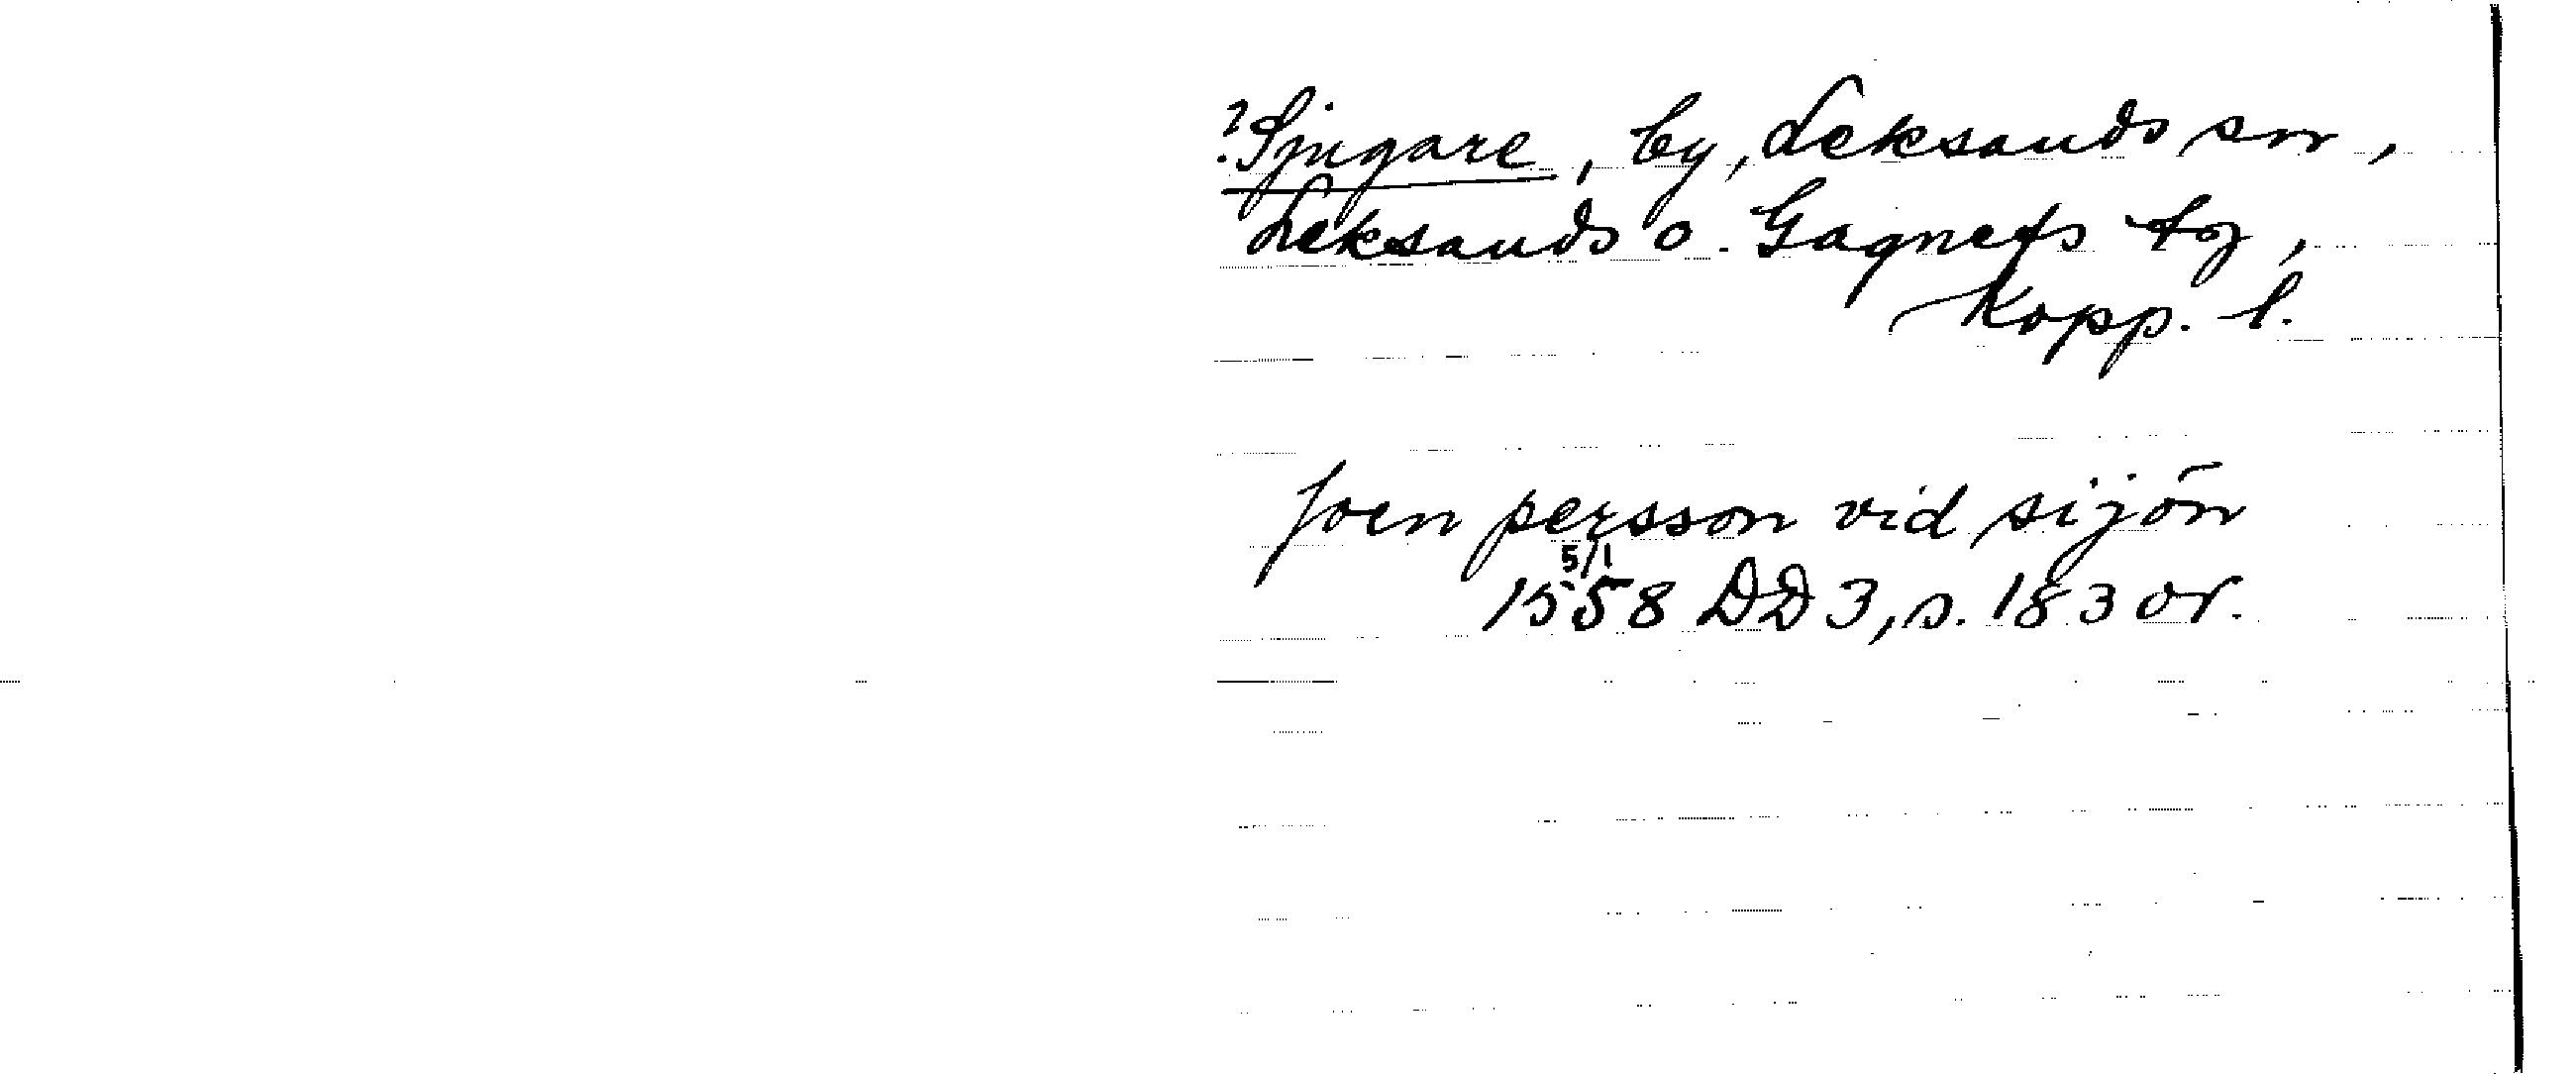 ?Sjugare, by, Leksands sn,
Leksands o. Gagnefs tg,
Kopp. l.
Joen persson vid sijön
5/1
1558 DD 3, s. 183 or.